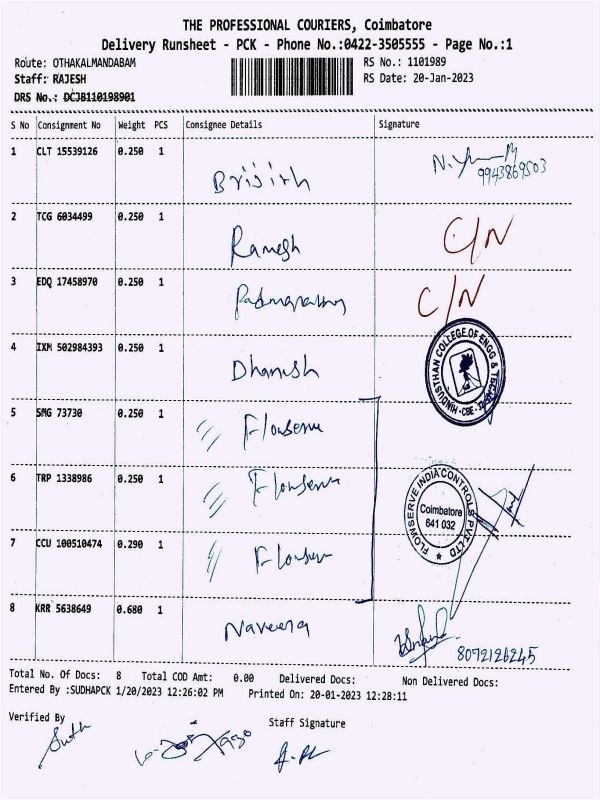 THE PROFESSIONAL COURIERS, Coimbatore
Delivery Runsheet - PCK - Phone No.:0422-3505555 - Page No.:1
Route: OTHAKALMANDABAM RS No.: 1101989
Staff: RAJESH RS Date: 20-Jan-2023
DRS No.: DCJB110198901
S No Consignment No Weight PCS Consignee Details Signature
1 CLT 15539126 0.250 1
9943869503
2 TCG 6034499 0.250 1 Ramesh C/N
3 EDQ 17458970 0.250 1 C/N
4 IXM 502984393 0.250 1 Dhanish
HINDUSTHAN COLLEGE OF ENGG &
5 SMG 73730 0.250 1 Flowserve
6 TRP 1338986 0.250 1 Flowserve
FLOWSERVE INDIA CONTROLS PVT. LTD
Coimbatore
641 032
7 CCU 100510474 0.290 1 Flowser
8 KRR 5638649 0.680 1 Naveena
8072126245
Total No. Of Docs: 8 Total COD Amt: 0.00 Delivered Docs: Non Delivered Docs:
Entered By :SUDHAPCK 1/20/2023 12:26:02 PM Printed On: 20-01-2023 12:28:11
Verified By Staff Signature